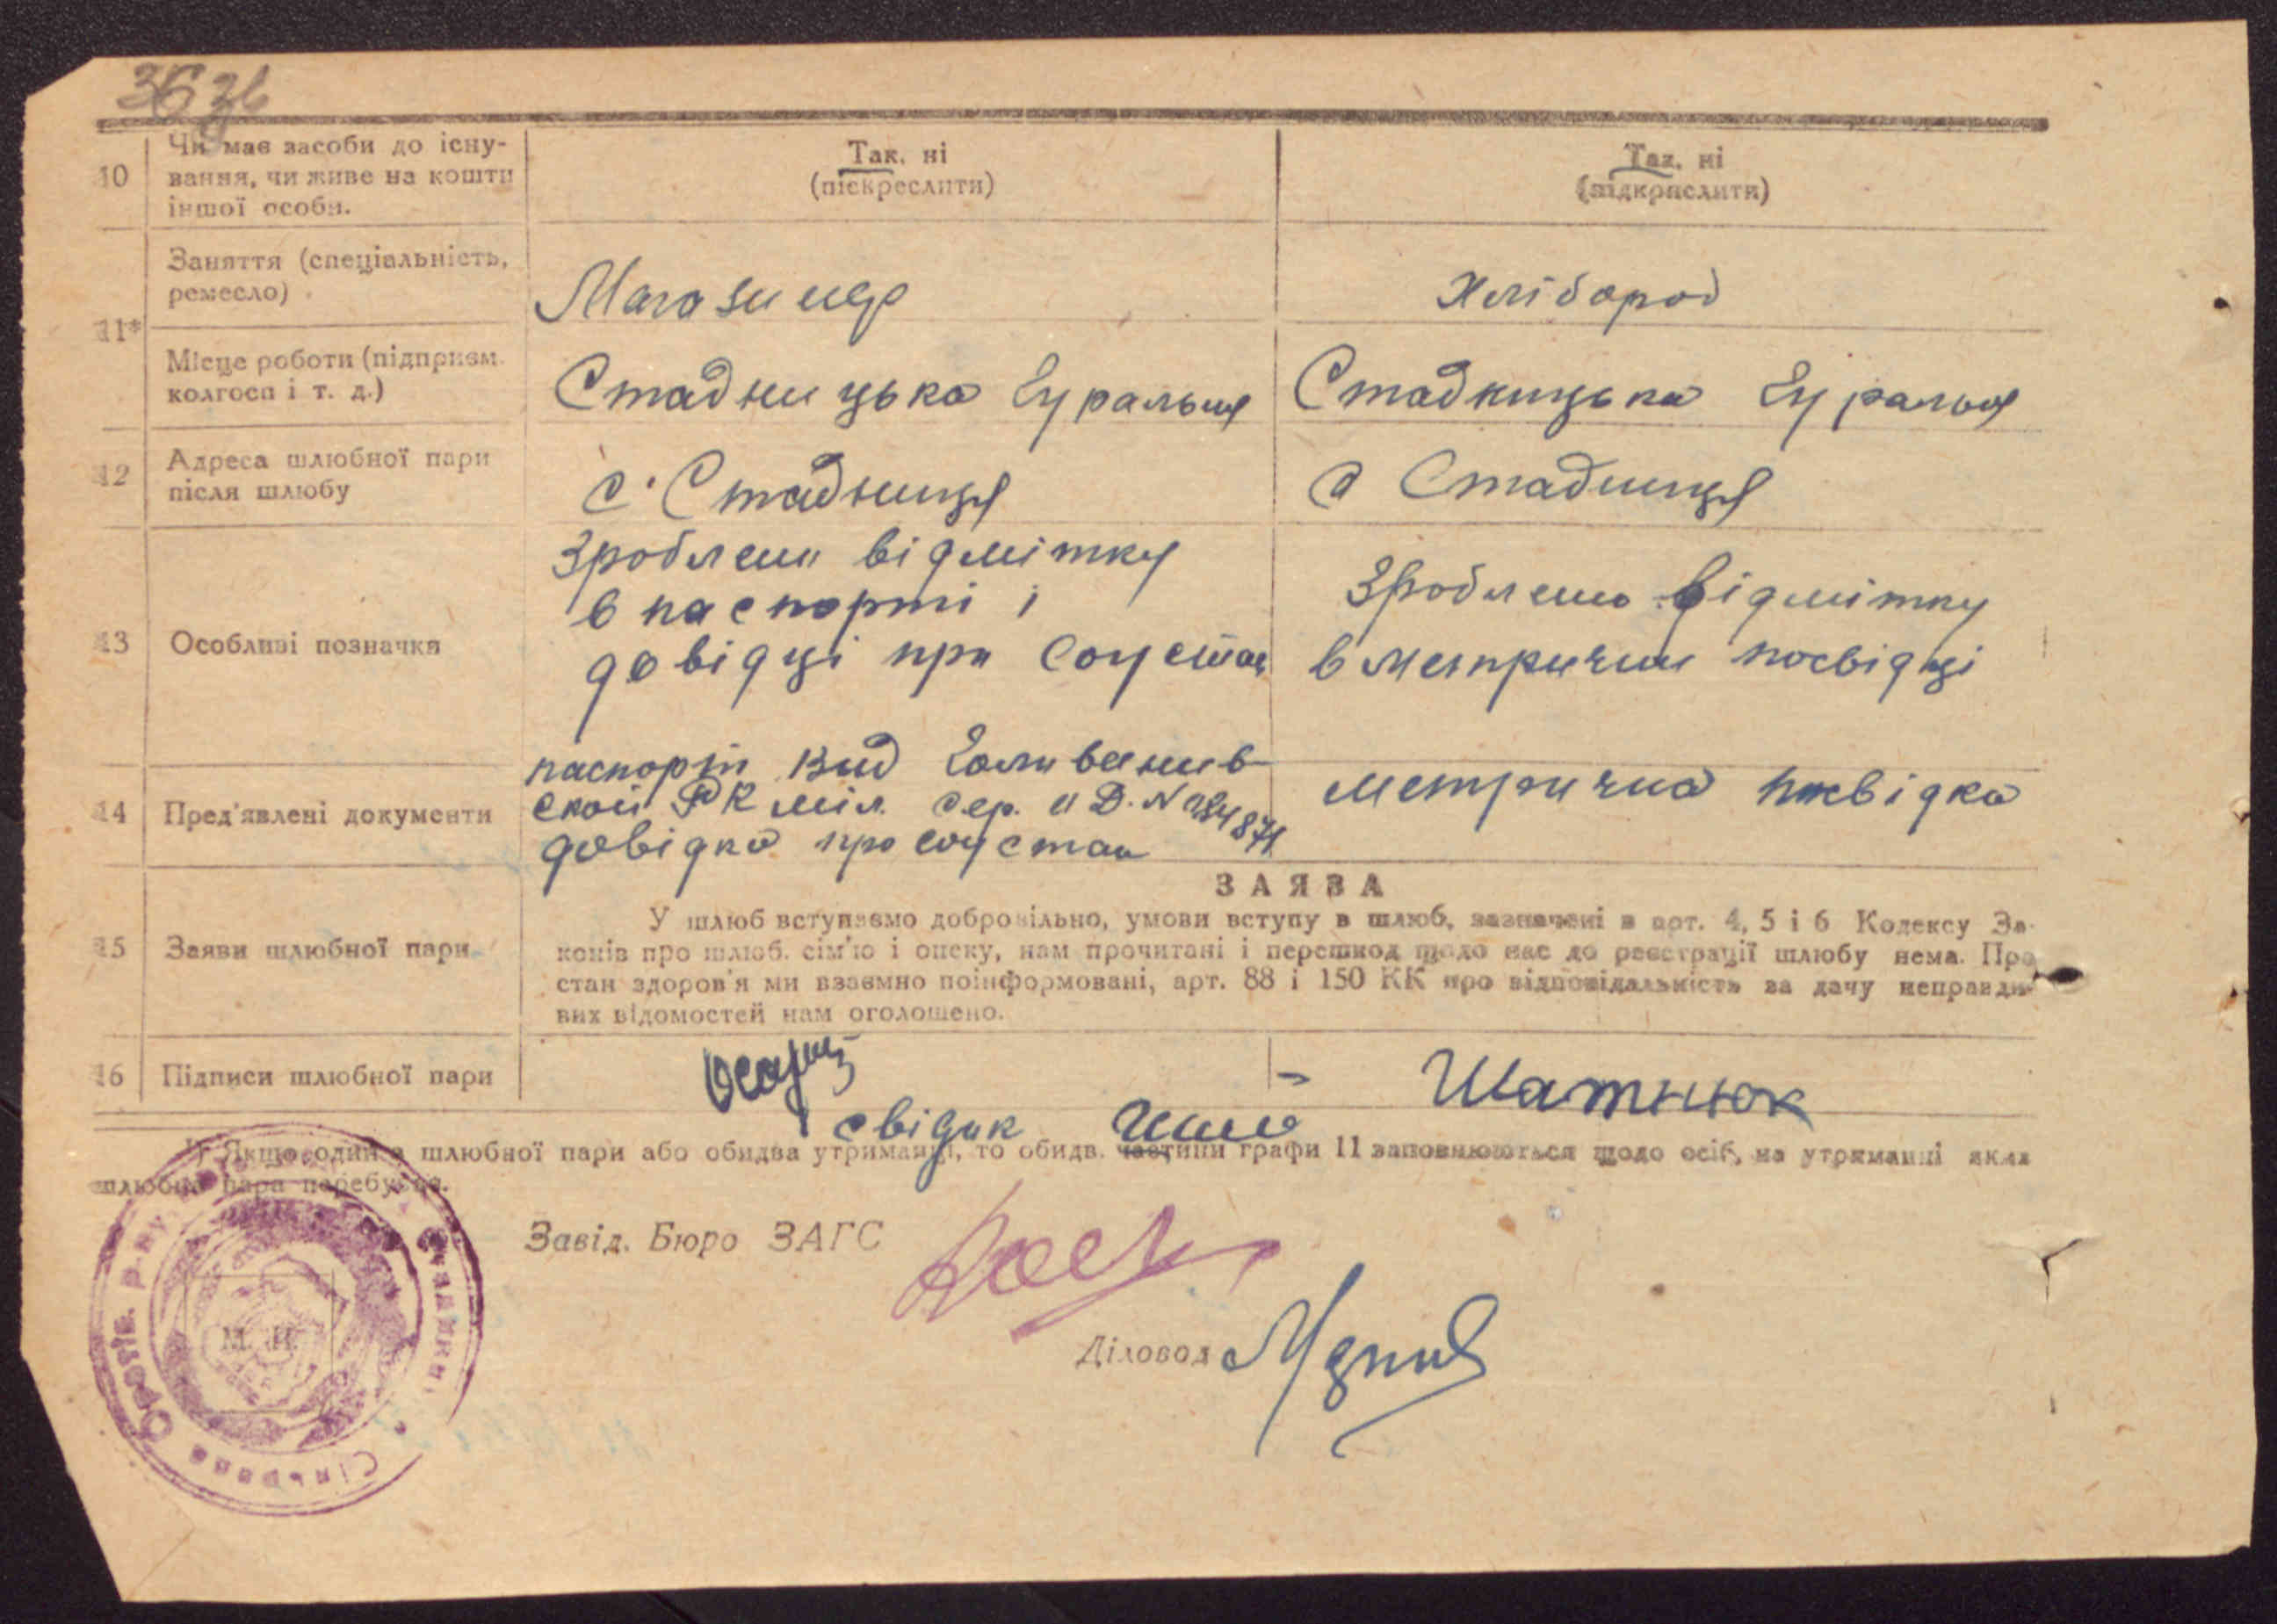 36 зв
10 Чи має засоби до існу-
вання, чи живе на кошти
іншої особи.
Так. ні
(піскреслити)
Так. ні
(підкрислити)
11*
Заняття (спеціальність,
ремесло)
Магазинер
Хлібороб
Місце роботи (підприєм.
колгосп і т. д.)
Стадницька Гуральня
Стадницька Гуральня
12 Адреса шлюбної пари
після шлюбу
с. Стадниця
с Стадниця
13 Особливі позначки
Зроблени відмітку
в паспорті і
довідці при
Зроблено відмітку
в метричии посвідці
14 Пред'явлені документи
паспорт вид
ской РК міл. сер. Д. N
довідка про
метрична посвідка
15 Заяви шлюбної пари
ЗАЯВА
У шлюб вступаємо добровільно, умови вступу в шлюб, зазначені в арт. 4, 5 і 6 Кодексу За-
конів про шлюб. сім'ю і опеку, нам прочитані і перешкод щодо нас до реєстрації шлюбу нема. Про
стан здоров'я ми взаємно поінформовані, арт. 88 і 150 КК про відповідальність за дачу неправди-
вих відомостей нам оголошено.
16 Підписи шлюбної пари
Шатнюк
свідик
Якщо один з шлюбної пари або обидва утриманці, то обидв. частини графи 11 заповнюються щодо осіб, на утриманні яких
шлюбна пара перебуває.
Завід. Бюро ЗАГС
Діловод
М. П.